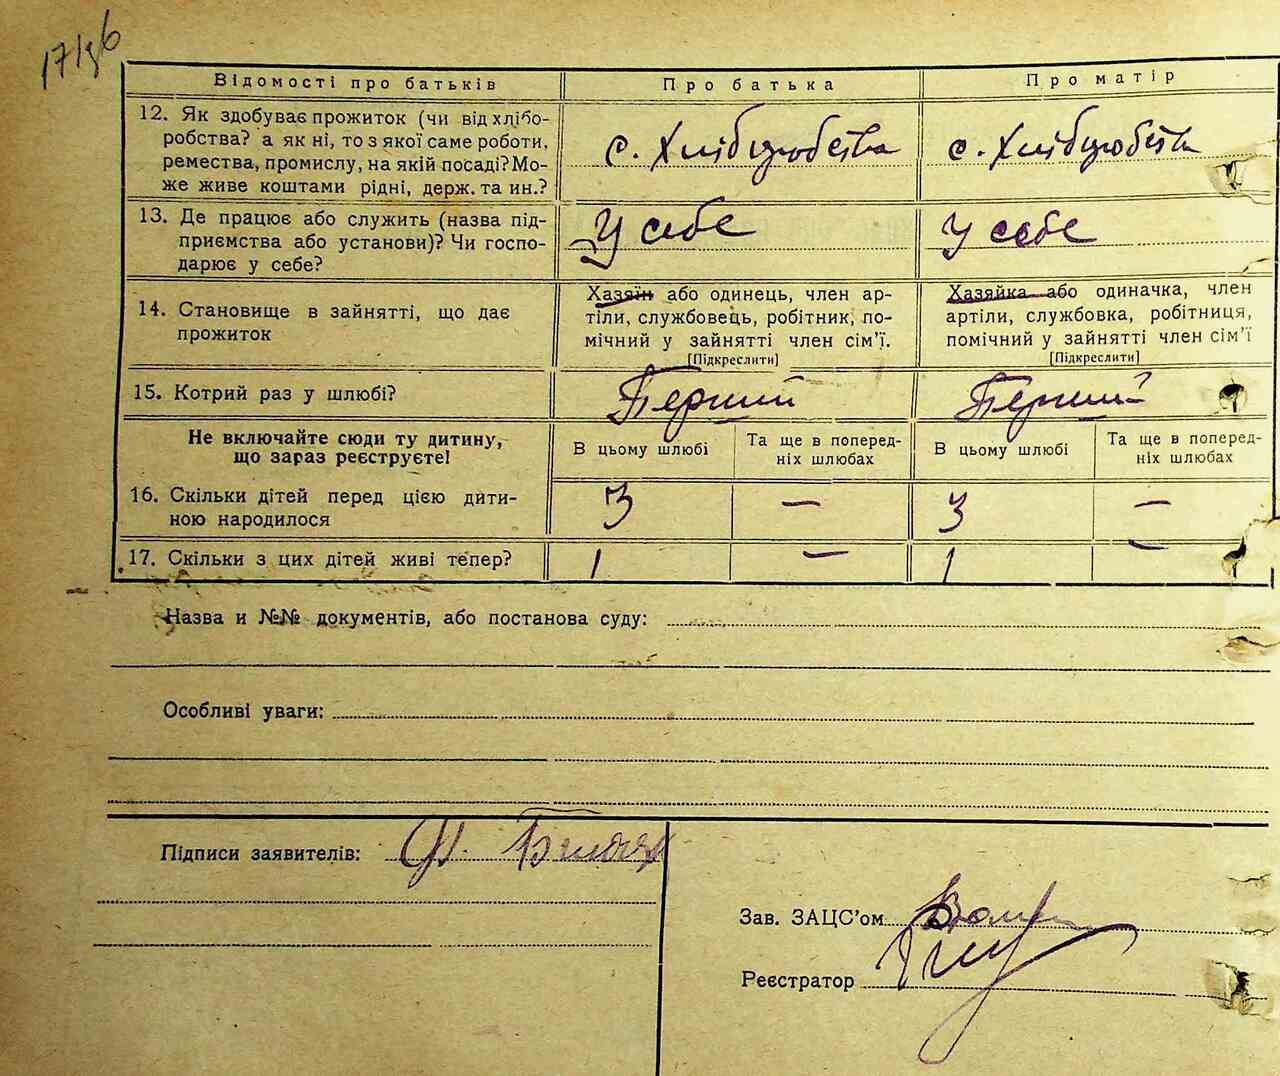 Відомості про батьків
Про батька
Про матір
12. Як здобуває прожиток (чи від хлібо-
робства? а як ні, то з якої саме роботи,
ремества, промислу, на якій посаді? Мо-
же живе коштами рідні, держ. та ин.?
с. Хлібороbства
с. Хлібороbства
13. Де працює або служить (назва під-
приємства або установи)? Чи госпо-
дарює у себе?
У себе
У себе
14. Становище в зайнятті, що дає
прожиток
Хазяїн або одинець, член ар-
тіли, службовець, робітник, по-
мічний у зайнятті член сім’ї.
[Підкреслити]
Хазяйка або одиначка, член
артіли, службовка, робітниця,
помічний у зайнятті член сім’ї
[Підкреслити]
15. Котрий раз у шлюбі?
Перший
Перший
Не включайте сюди ту дитину,
що зараз реєструєте!
В цьому шлюбі
Та ще в поперед-
ніх шлюбах
В цьому шлюбі
Та ще в поперед-
ніх шлюбах
16. Скільки дітей перед цією дити-
ною народилося
3
—
3
—
17. Скільки з цих дітей живі тепер?
1
—
1
—
Назва и №№ документів, або постанова суду:
Особливі уваги:
Підписи заявителів:
Зав. ЗАЦС’ом
Реєстратор